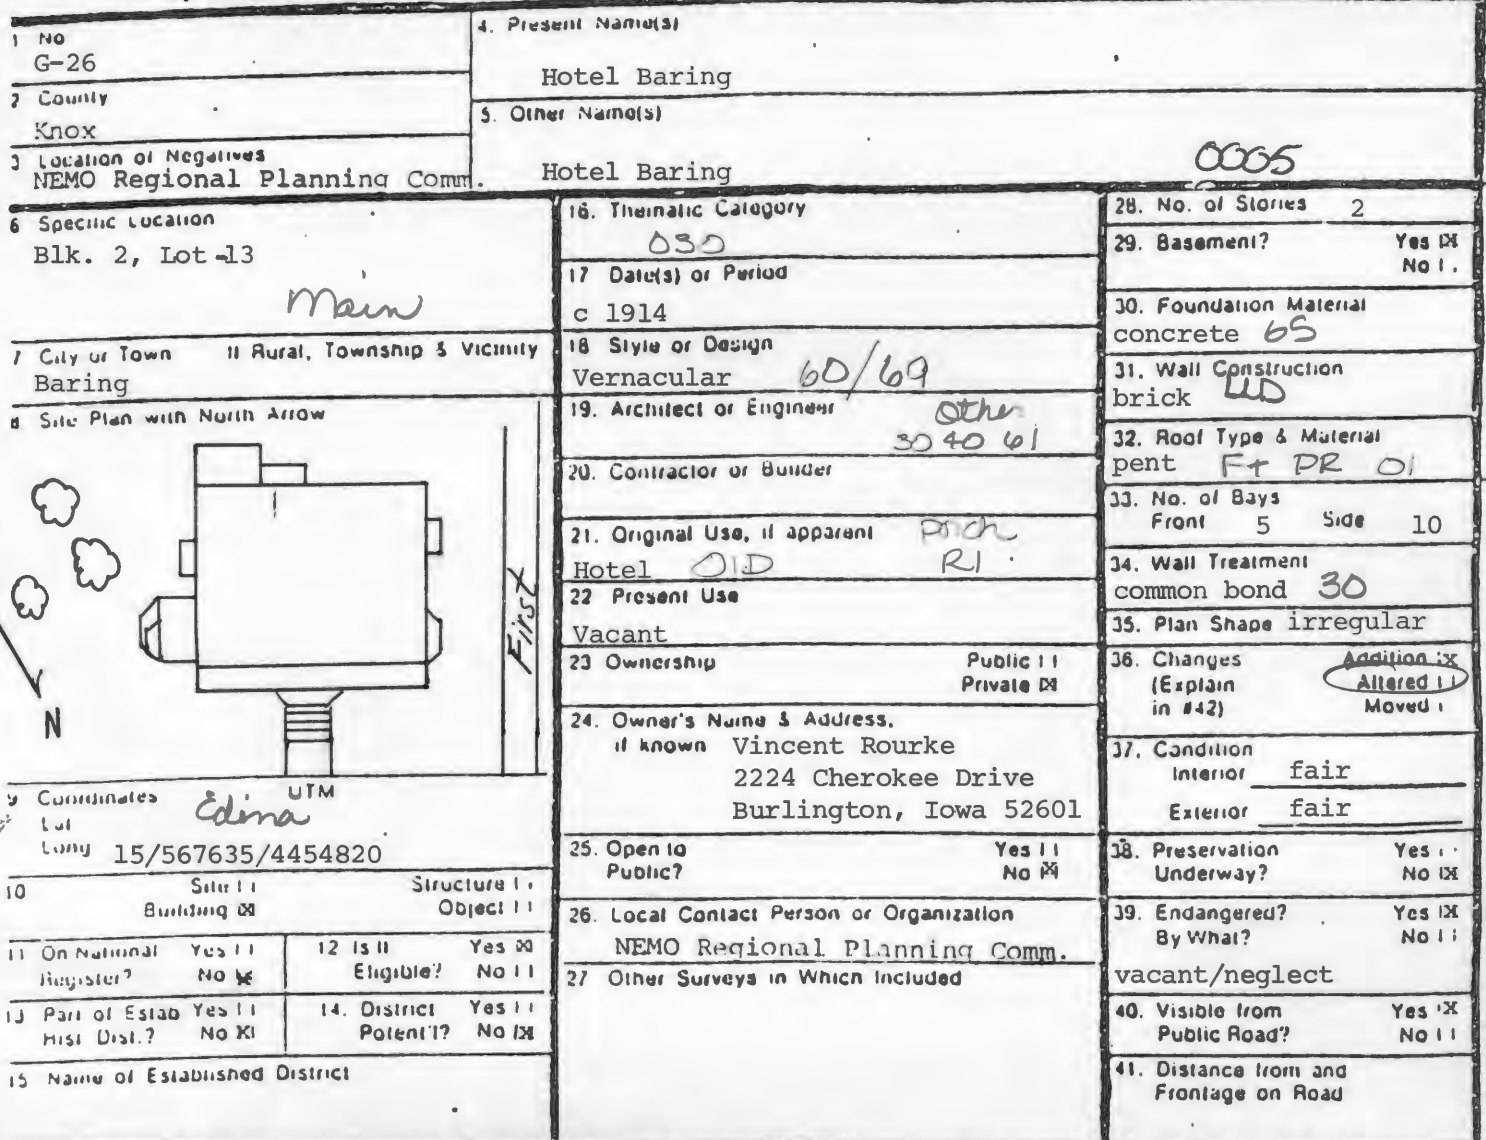 1 No
G-26
2 County
Knox
3 Location of Negatives
NEMO Regional Planning Comm.
4. Present Name(s)
Hotel Baring
5. Other Name(s)
Hotel Baring
0005
6 Specific Location
Blk. 2, Lot 13
Main
7 City or Town If Rural, Township & Vicinity
Baring
8 Site Plan with North Arrow
First
N
9 Coordinates UTM
Edina
Lat
Long 15/567635/4454820
10 Site Structure
Building ☒ Object
11 On National Register? Yes No ☒
12 Is It Eligible? Yes ☒ No
13 Part of Estab Hist Dist.? Yes No ☒
14. District Potent'l? Yes No ☒
15 Name of Established District
16. Thematic Category
030
17 Date(s) or Period
c 1914
18 Style or Design
Vernacular 60/69
19. Architect or Engineer
Other
30 40 61
20. Contractor or Builder
21. Original Use, if apparent
Porch
Hotel 01D R1
22 Present Use
Vacant
23 Ownership Public
Private ☒
24. Owner's Name & Address,
if known Vincent Rourke
2224 Cherokee Drive
Burlington, Iowa 52601
25. Open to Yes
Public? No ☒
26. Local Contact Person or Organization
NEMO Regional Planning Comm.
27 Other Surveys in Which Included
28. No. of Stories 2
29. Basement? Yes ☒
No
30. Foundation Material
concrete 65
31. Wall Construction
brick
32. Roof Type & Material
pent Ft PR 01
33. No. of Bays
Front 5 Side 10
34. Wall Treatment
common bond 30
35. Plan Shape irregular
36. Changes Addition ☒
(Explain Altered
in #42) Moved
37. Condition
Interior fair
Exterior fair
38. Preservation Yes
Underway? No ☒
39. Endangered? Yes ☒
By What? No
vacant/neglect
40. Visible from Yes ☒
Public Road? No
41. Distance from and
Frontage on Road